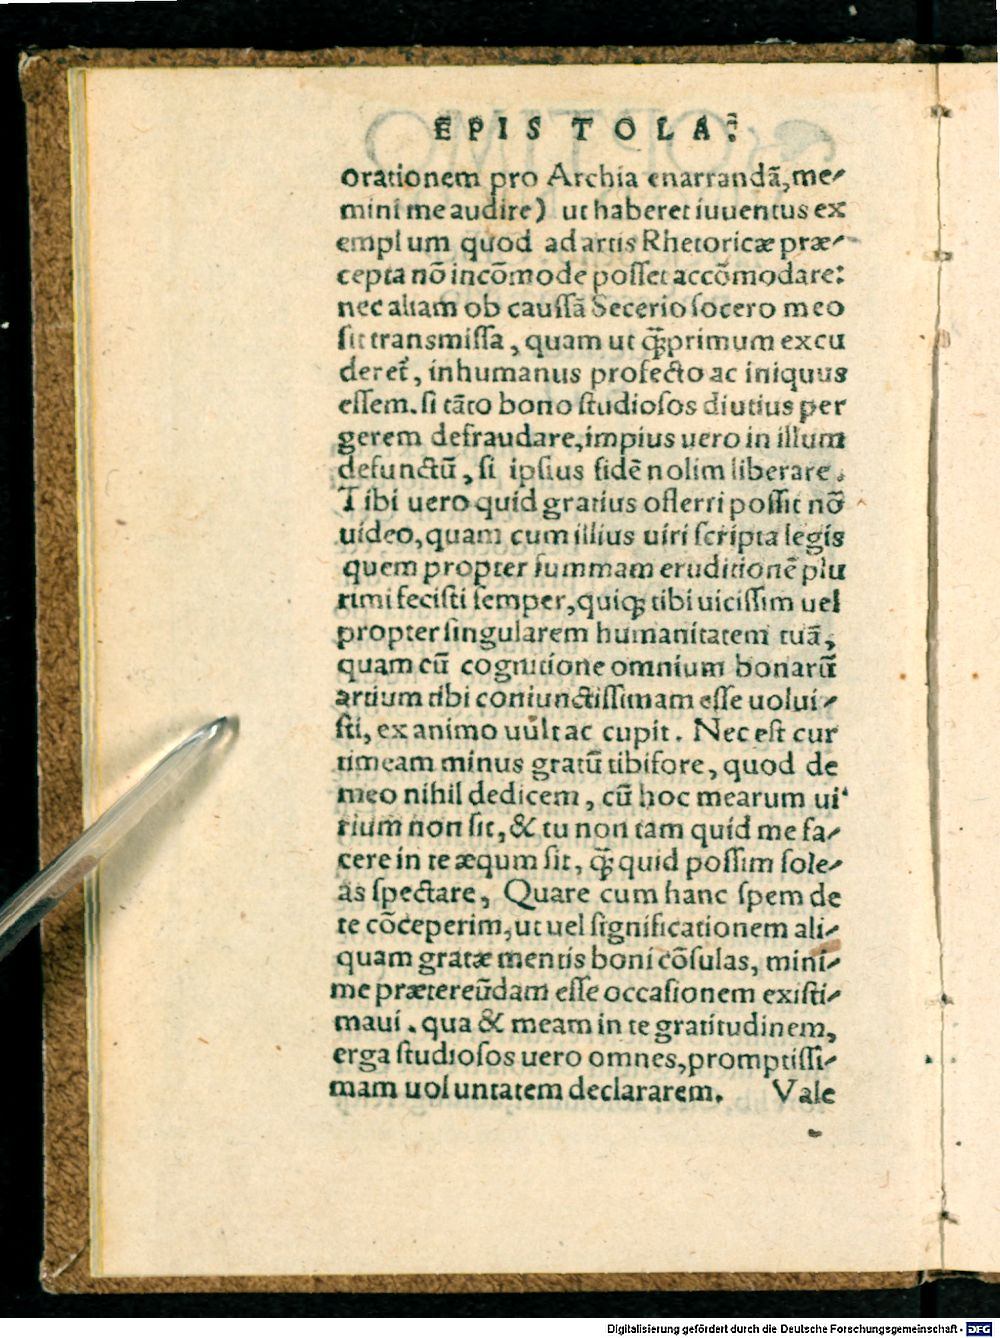 EPISTOLA:
orationem pro Archia enarrandã, me-
mini me audire) ut haberet iuuentus ex
emplum quod ad artis Rhetoricæ præ-
cepta nõ incõmode posset accõmodare:
nec aliam ob caussã Secerio socero meo
sit transmissa, quam ut q̃primum excu
deret, inhumanus profecto ac iniquus
essem. si tãto bono studiosos diutius per
gerem defraudare, impius uero in illum
defunctũ, si ipsius fidẽ nolim liberare.
Tibi uero quid gratius offerri possit nõ
uideo, quam cum illius uiri scripta legis
quem propter summam eruditionẽ plu
rimi fecisti semper, quiq; tibi uicissim uel
propter singularem humanitatem tuã,
quam cũ cognitione omnium bonarũ
artium tibi coniunctissimam esse uolui-
sti, ex animo uult ac cupit. Nec est cur
timeam minus gratũ tibi fore, quod de
meo nihil dedicem, cũ hoc mearum ui-
rium non sit, & tu non tam quid me fa-
cere in te æqum sit, q̃ quid possim sole-
as spectare, Quare cum hanc spem de
te cõceperim, ut uel significationem ali-
quam gratæ mentis boni cõsulas, mini-
me prætereũdam esse occasionem existi-
maui. qua & meam in te gratitudinem,
erga studiosos uero omnes, promptissi-
mam uoluntatem declararem. Vale
Digitalisierung gefördert durch die Deutsche Forschungsgemeinschaft - DFG